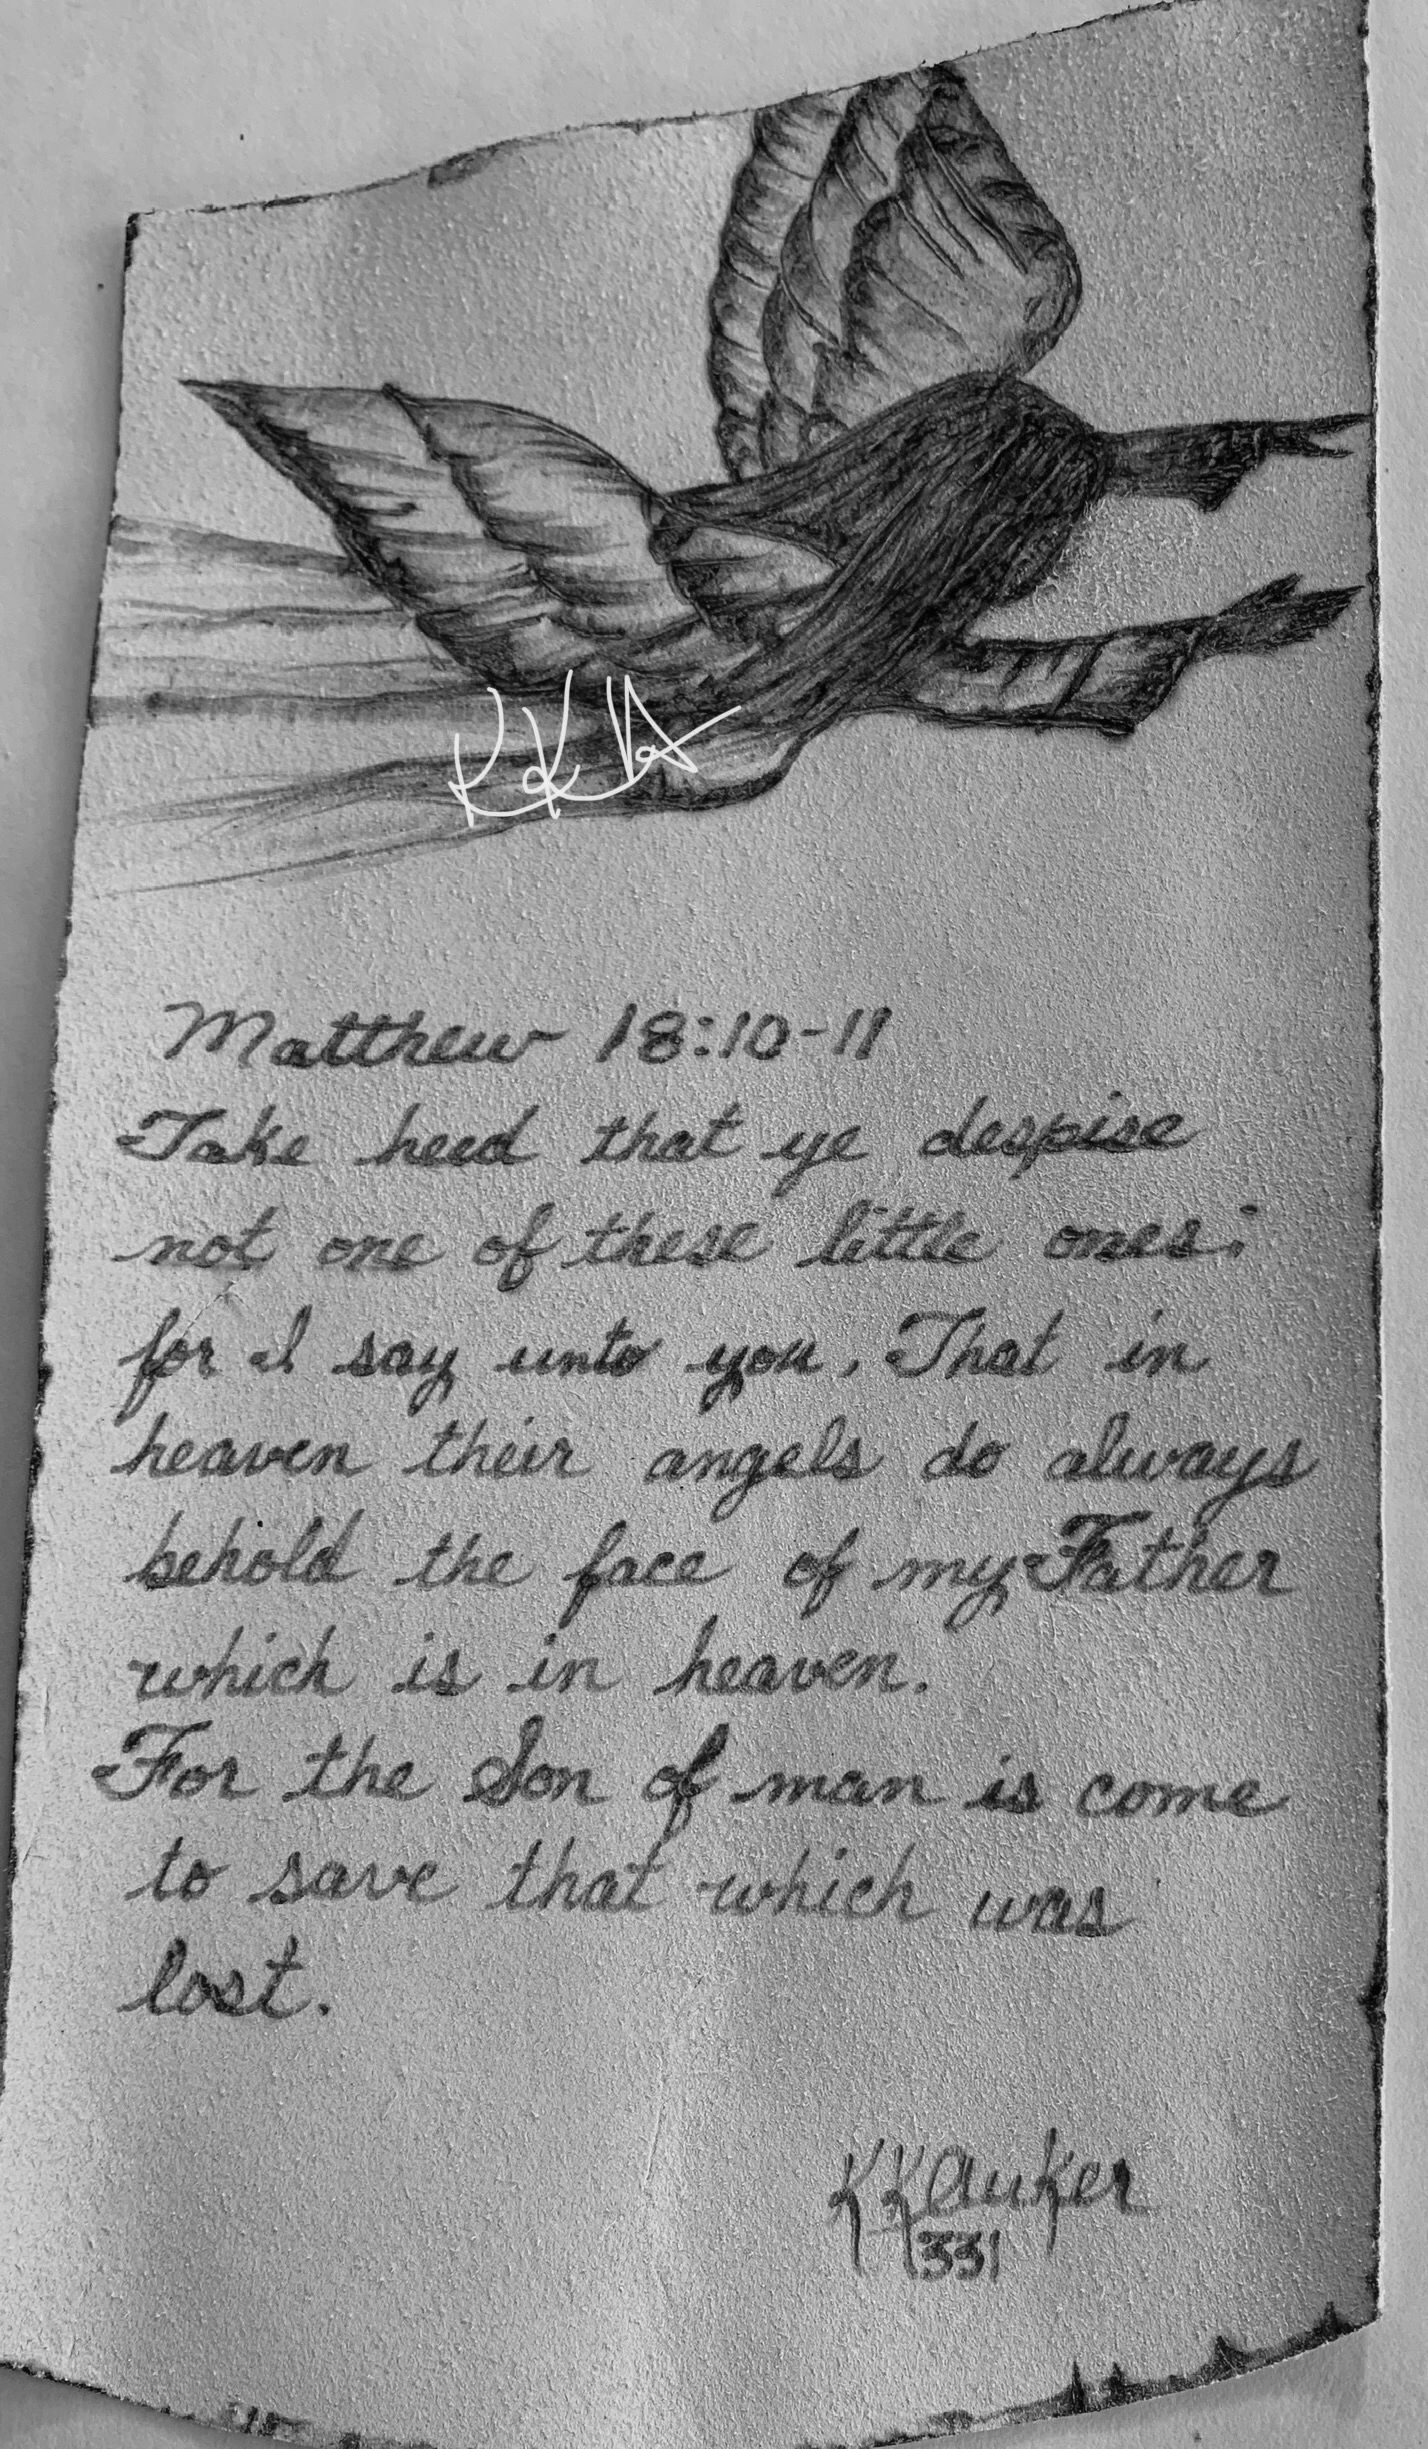 Matthew 18:10-11
Take heed that ye despise
not one of these little ones;
for I say unto you, That in
heaven their angels do always
behold the face of my Father
which is in heaven.
For the Son of man is come
to save that which was
lost.
KKAuker
331